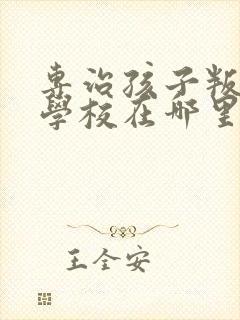 專治孩子叛
學校在哪里
王全安